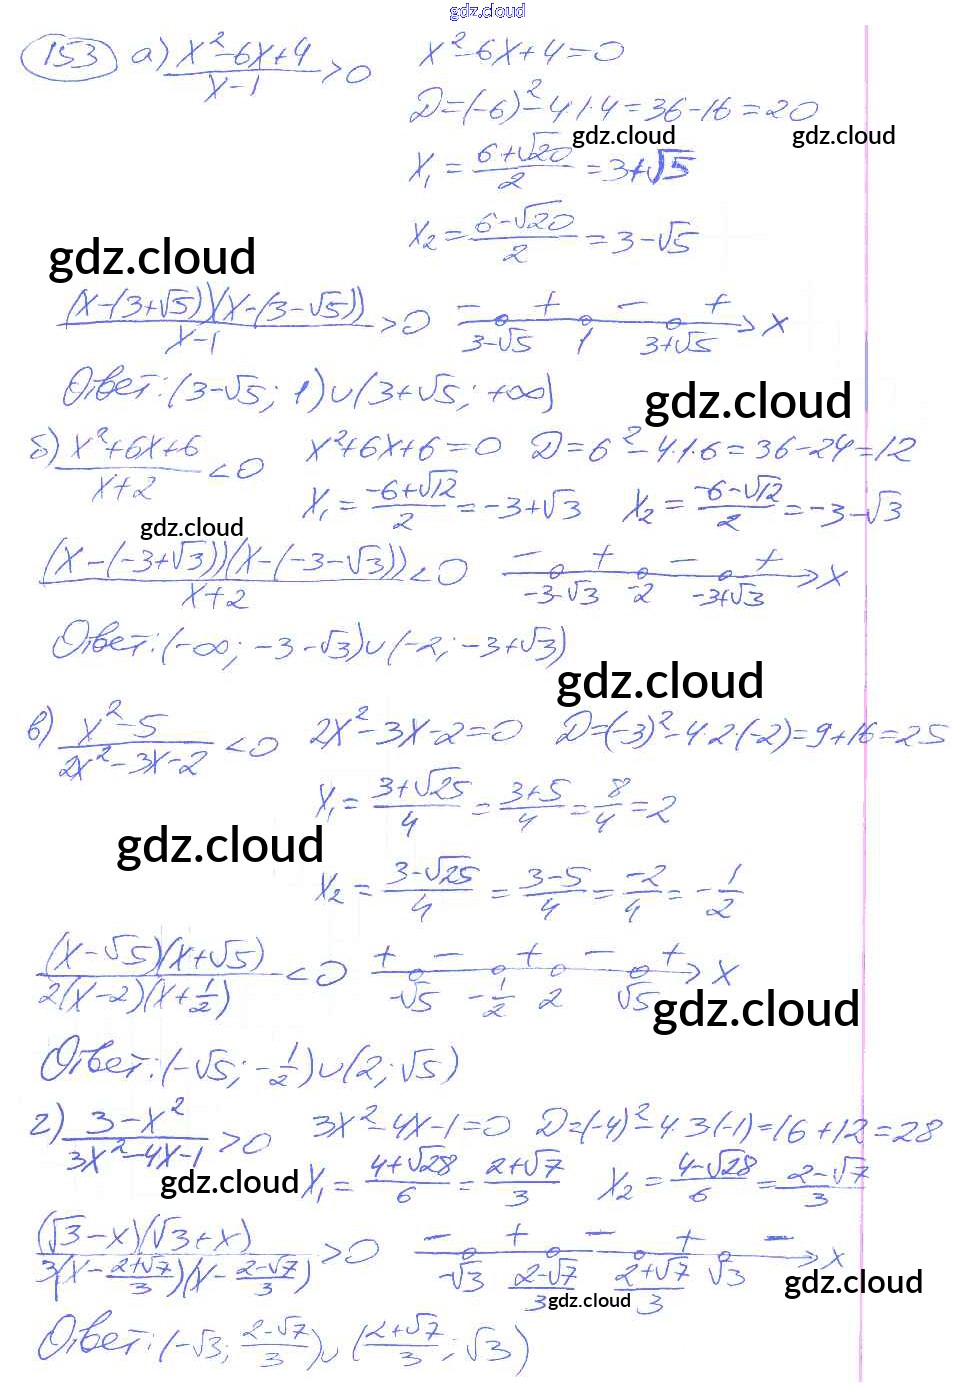 gdz.cloud
153 а) (x²-6x+4)/(x-1) > 0   x²-6x+4=0
D=(-6)²-4·1·4=36-16=20
gdz.cloud gdz.cloud
x₁ = (6+√20)/2 = 3+√5
x₂ = (6-√20)/2 = 3-√5
gdz.cloud
(x-(3+√5))(x-(3-√5))/(x-1) > 0   - + - + x
3-√5   1   3+√5
Ответ: (3-√5; 1)∪(3+√5; +∞)
gdz.cloud
б) (x²+6x+6)/(x+2) < 0   x²+6x+6=0   D=6²-4·1·6=36-24=12
x₁ = (-6+√12)/2 = -3+√3   x₂ = (-6-√12)/2 = -3-√3
gdz.cloud
(x-(-3+√3))(x-(-3-√3))/(x+2) < 0   - + - + x
-3-√3   -2   -3+√3
Ответ: (-∞; -3-√3)∪(-2; -3+√3)
gdz.cloud
в) (x²-5)/(2x²-3x-2) < 0   2x²-3x-2=0   D=(-3)²-4·2·(-2)=9+16=25
x₁ = (3+√25)/4 = (3+5)/4 = 8/4 = 2
gdz.cloud
x₂ = (3-√25)/4 = (3-5)/4 = -2/4 = -1/2
(x-√5)(x+√5)/(2(x-2)(x+1/2)) < 0   + - + - + x
-√5   -1/2   2   √5
gdz.cloud
Ответ: (-√5; -1/2)∪(2; √5)
г) (3-x²)/(3x²-4x-1) > 0   3x²-4x-1=0   D=(-4)²-4·3(-1)=16+12=28
gdz.cloud
x₁ = (4+√28)/6 = (2+√7)/3   x₂ = (4-√28)/6 = (2-√7)/3
(√3-x)(√3+x)/(3(x-(2+√7)/3)(x-(2-√7)/3)) > 0   - + - + - x
-√3   (2-√7)/3   (2+√7)/3   √3
gdz.cloud gdz.cloud
Ответ: (-√3; (2-√7)/3)∪((2+√7)/3; √3)